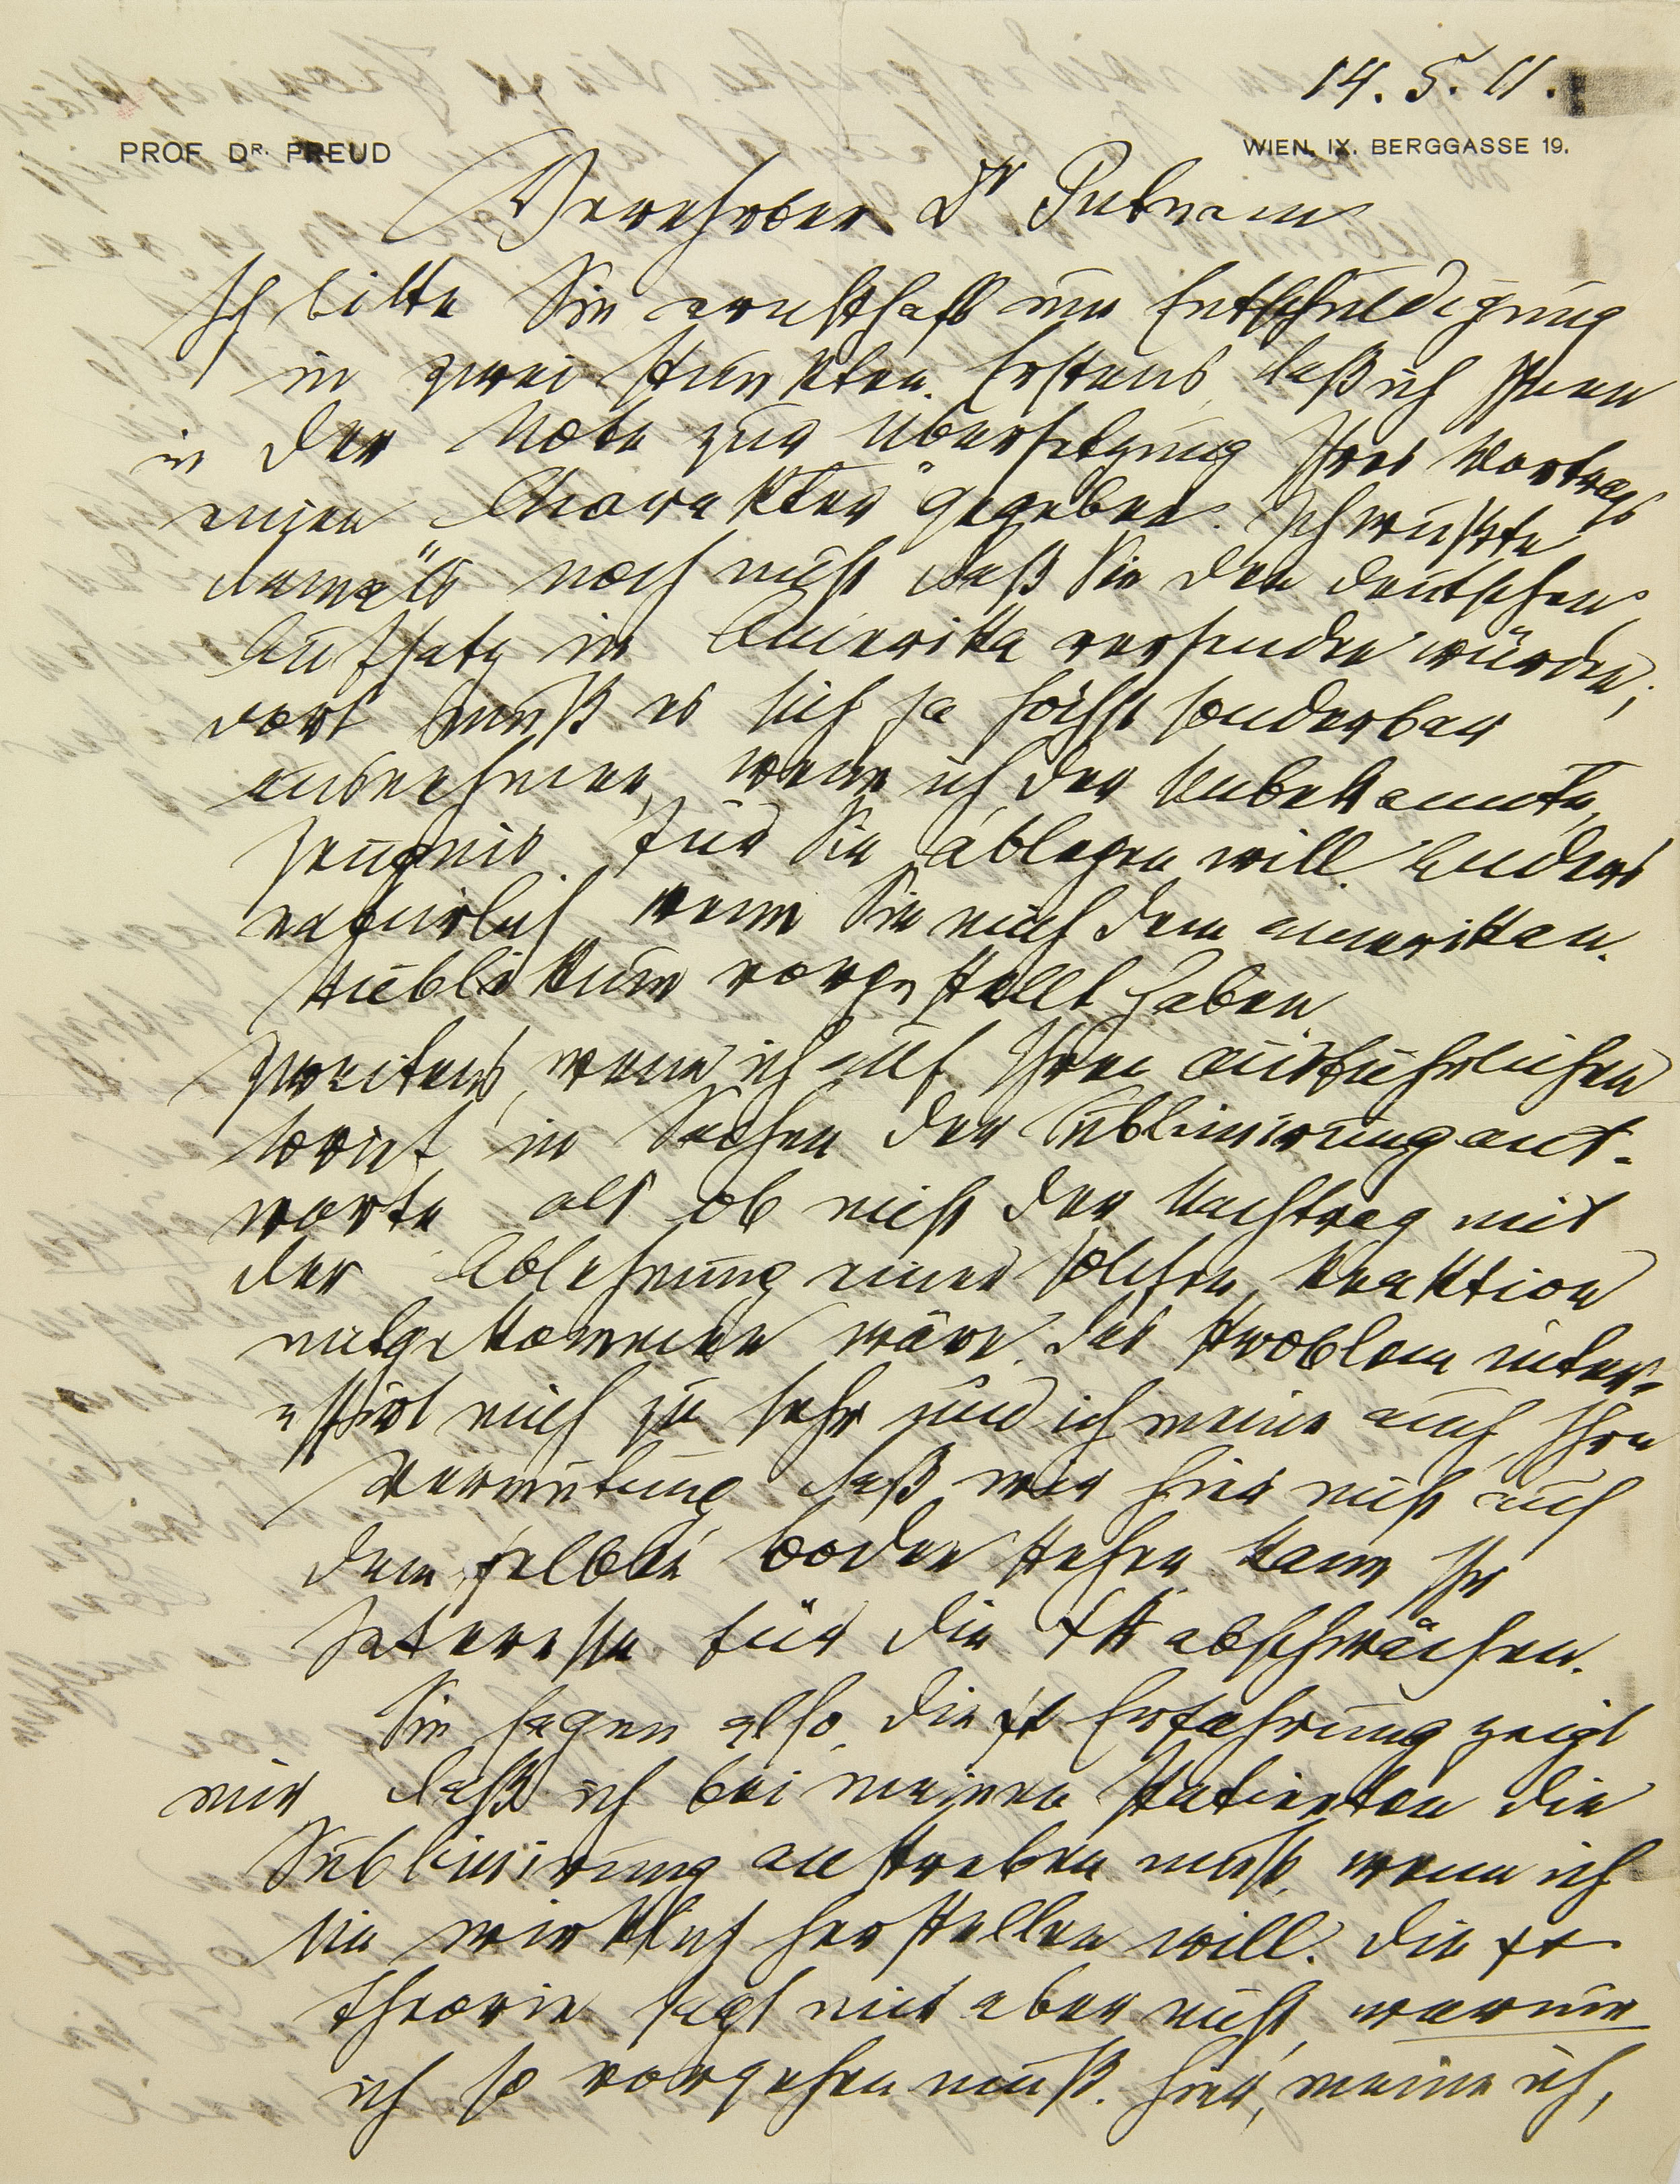 14. 5. 11.
PROF. DR. FREUD
WIEN, IX. BERGGASSE 19.
Verehrter Dr Putnam
Ich bitte Sie ernsthaft um Entschuldigung
in zwei Punkten. Erstens, daß ich Ihnen
in der Note zur Übersetzung Ihres Vortrags
einen „Charakter" gegeben. Ich wußte
damals noch nicht daß Sie den deutschen
Aufsatz in Amerika versenden würden;
dort muß es sich ja höchst sonderbar
ausnehmen, wenn ich der Unbekannte,
Zeugnis für Sie ablegen will. Anders
natürlich wenn Sie mich dem amerikan.
Publikum vorgestellt haben
Zweitens, wenn ich auf Ihren ausführlichen
Brief in Sachen der Sublimirung ant-
worte als ob nicht der Nachtrag mit
der Ablehnung einer solchen Reaktion
mitgekommen wäre. Das Problem inter-
essirt mich zu sehr und ich meine auch Ihre
Vermutung daß wir hier nicht auf
demselben Boden stehen kann Ihr
Interesse für die ΨΑ abschwächen.
Sie sagen also, die ψα Erfahrung zeigt
mir daß ich bei meinen Patienten die
Sublimirung anstreben muß, wenn ich
sie wirklich herstellen will. Die ψα
Theorie sagt mir aber nicht, warum
ich so vorgehen muß. Hier, meine ich,